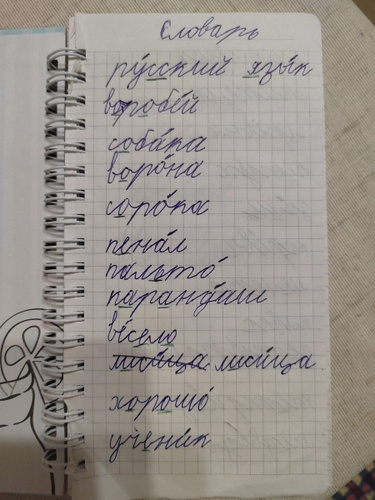 Словарь
ру́сский язы́к
воробе́й
соба́ка
воро́на
соро́ка
пена́л
пальто́
каранда́ш
ве́село
лиси́ца лиси́ца
хорошо́
учени́к